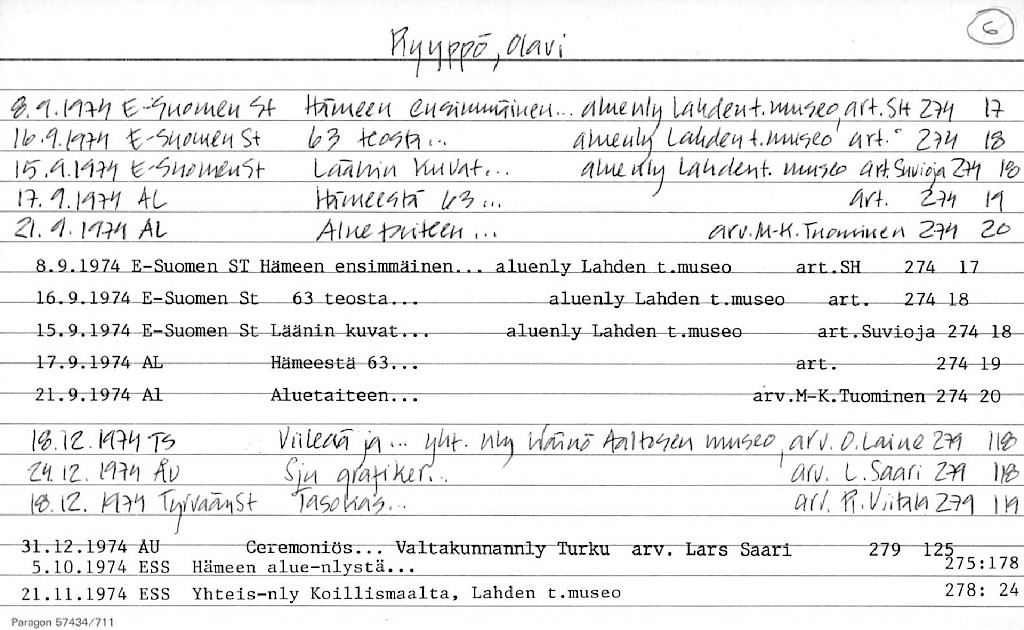 6
Ryyppö, Olavi
8.9.1974 E-Suomen St Hämeen ensimmäinen... aluenly Lahden t.museo, art. SH 274 17
16.9.1974 E-Suomen St 63 teosta... aluenly Lahden t.museo, art. " 274 18
15.9.1974 E-Suomen St Läänin kuvat... aluenly Lahden t. museo art. Suvioja 274 18
17.9.1974 AL Hämeestä 63... art. 274 19
21.9.1974 AL Aluetaiteen... arv. M-K. Tuominen 274 20
8.9.1974 E-Suomen ST Hämeen ensimmäinen... aluenly Lahden t.museo art.SH 274 17
16.9.1974 E-Suomen St 63 teosta... aluenly Lahden t.museo art. 274 18
15.9.1974 E-Suomen St Läänin kuvat... aluenly Lahden t.museo art.Suvioja 274 18
17.9.1974 AL Hämeestä 63... art. 274 19
21.9.1974 Al Aluetaiteen... arv.M-K.Tuominen 274 20
18.12.1974 TS Viileää ja... yht. nly Wäinö Aaltosen museo, arv. O. Laine 279 118
24.12.1974 ÅU Sju grafiker... arv. L. Saari 279 118
18.12.1974 Tyrvään St Tasokas... arv. R. Viitala 279 119
31.12.1974 ÅU Ceremoniös... Valtakunnannly Turku arv. Lars Saari 279 125
5.10.1974 ESS Hämeen alue-nlystä... 275:178
21.11.1974 ESS Yhteis-nly Koillismaalta, Lahden t.museo 278: 24
Paragon 57434/711